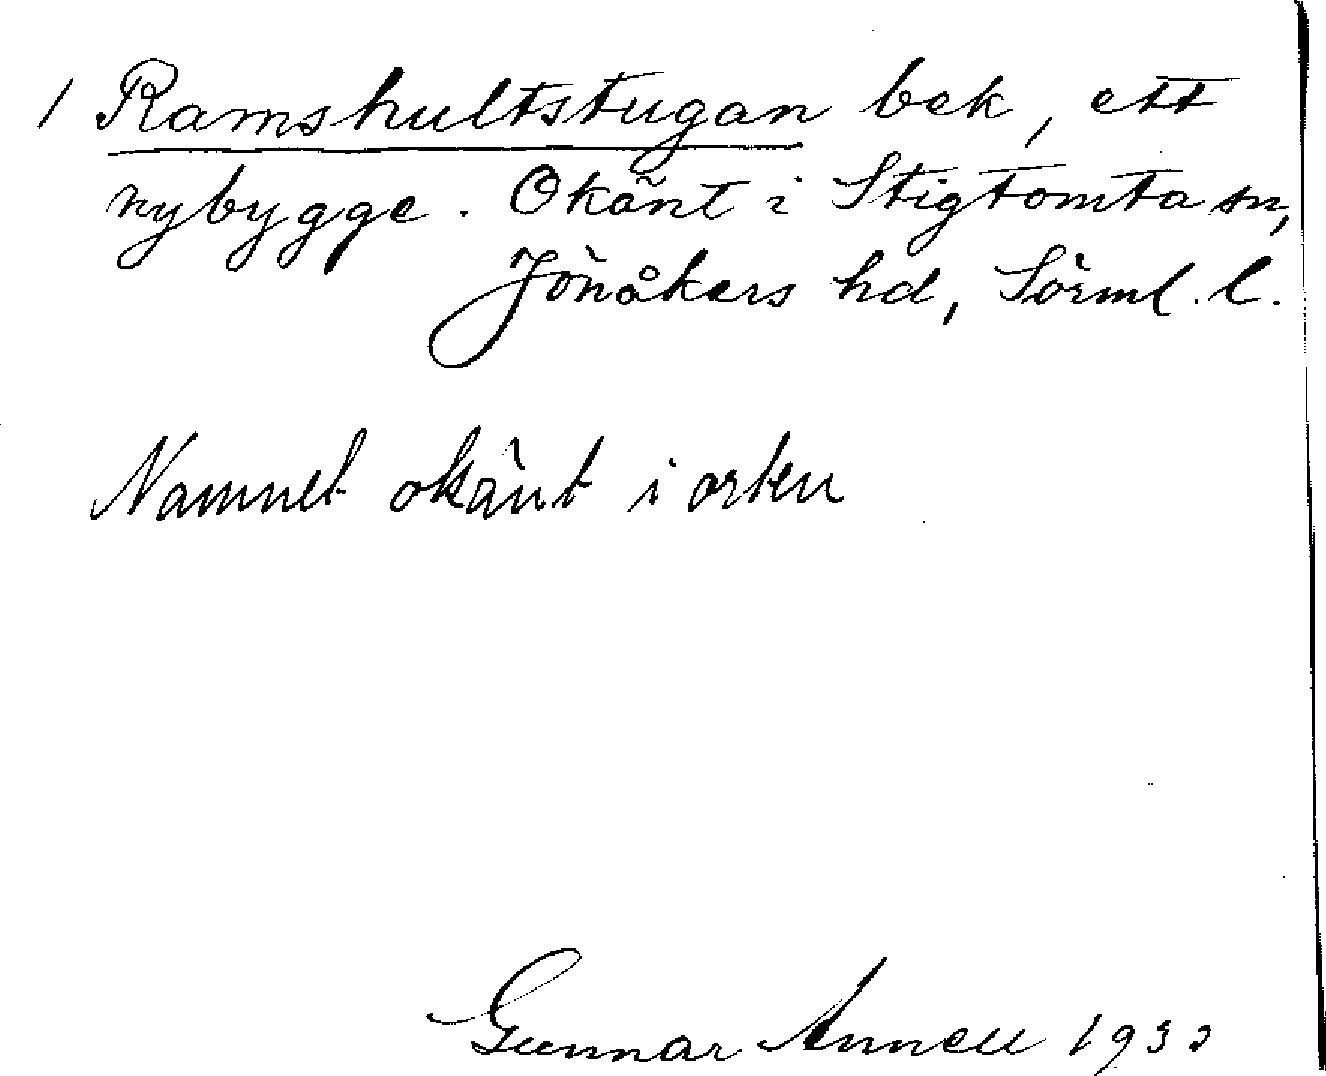 1 Ramshultstugan bek, ett
nybygge. Okänt i Stigtomta sn,
Jönåkers hd, Sörml. l.
Namnet okänt i orten
Gunnar Annell